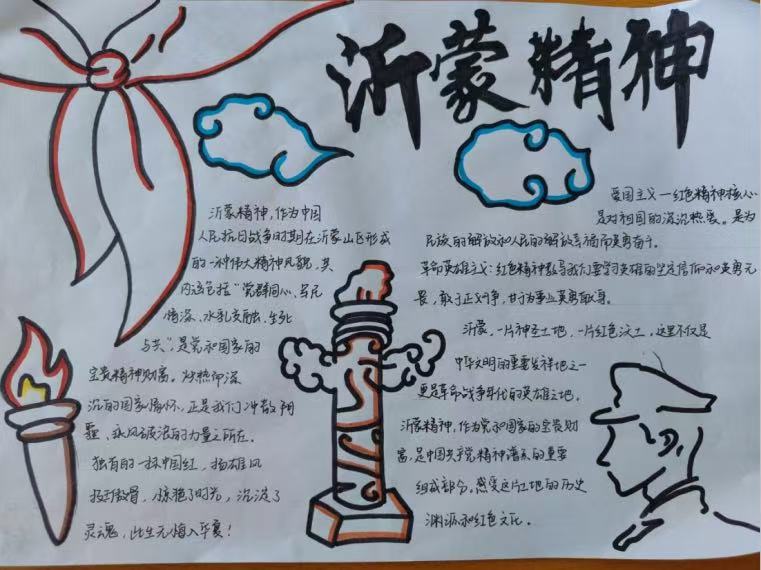 沂蒙精神
沂蒙精神,作为中国
人民抗日战争时期在沂蒙山区形成
的一种伟大精神风貌,其
内涵包括“党群同心、军民
情深、水乳交融、生死
与共”,是党和国家的
宝贵精神财富。炽热而深
沉的家国情怀,正是我们冲散阴
霾、乘风破浪的力量之所在。
独有的一抹中国红,扬雄风
傲骨,惊艳了时光,沉淀了
灵魂,此生无悔入华夏!
爱国主义一红色精神核心
是对祖国的深沉热爱。是为
民族的解放和人民的解放幸福而英勇奋斗。
革命英雄主义:红色精神教导我们要学习英雄的坚定信仰和英勇无
畏,敢于正义斗争,甘于为事业英勇献身。
沂蒙,一片神圣土地,一片红色沃土,这里不仅是
中华文明的重要发祥地之一
更是革命战争年代的英雄之地。
沂蒙精神,作为党和国家的宝贵财
富,是中国共产党精神谱系的重要
组成部分。感受这片土地的历史
渊源和红色文化。